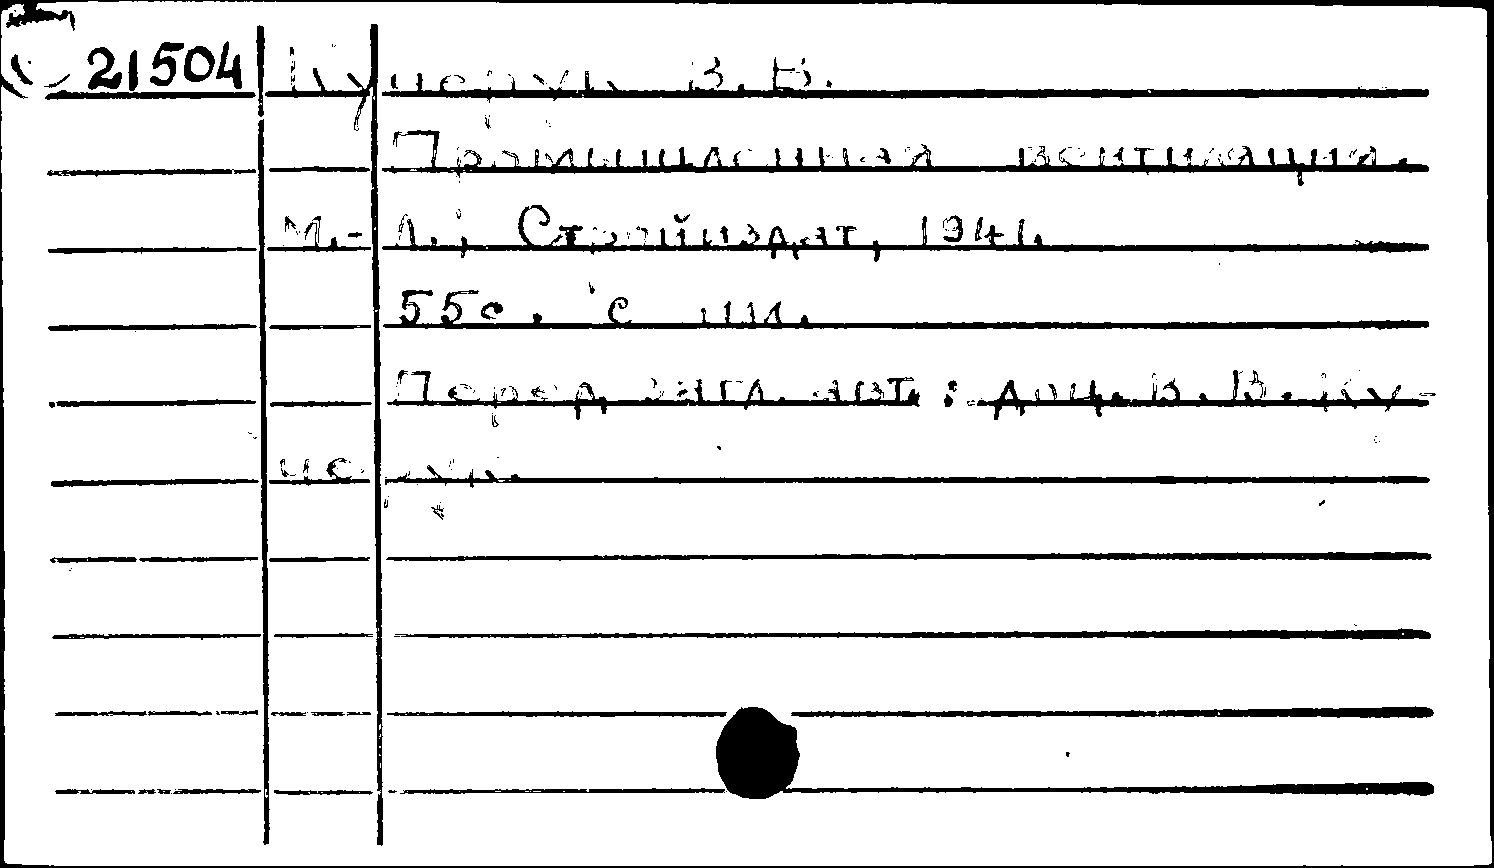 21504 Кучерук В.В.
Промышленная вентиляция.
М.-Л., Стройиздат, 1941.
55с. с ил.
Перед загл. авт.: доц. В.В. Ку-
черук.